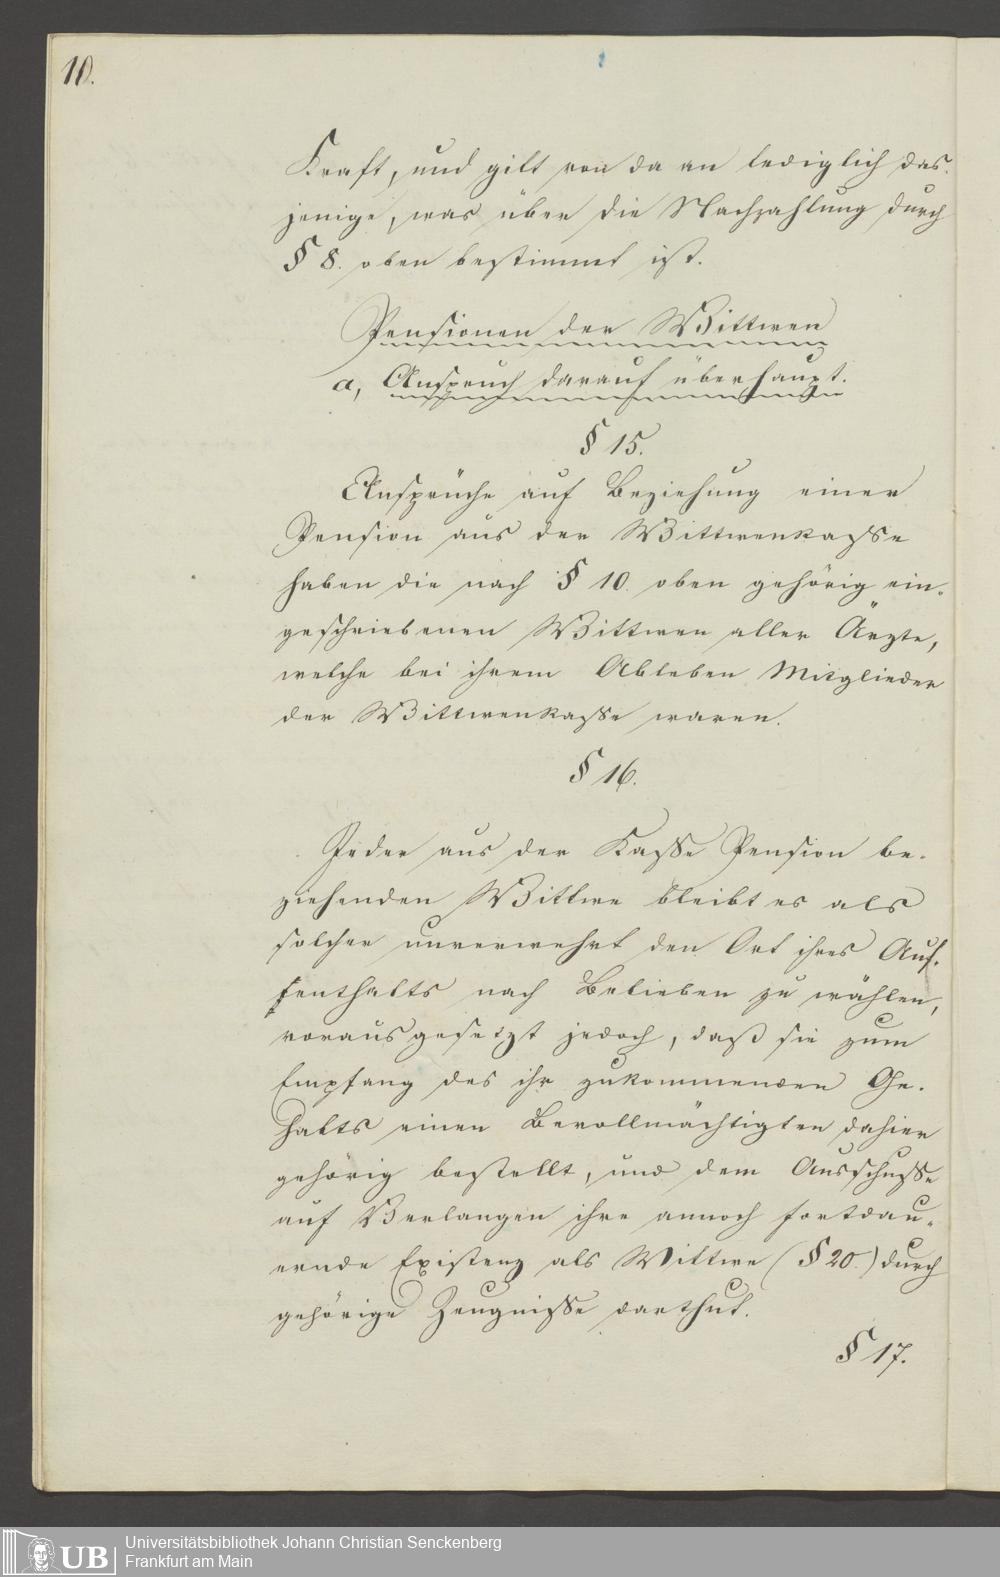 10.
Kraft, und gilt von da an lediglich das-
jenige, was über die Nachzahlung durch
§ 8. oben bestimmt ist.
Pensionen der Wittwen
a, Anspruch darauf überhaupt.
§ 15.
Ansprüche auf Beziehung einer
Pension aus der Wittwenkasse
haben die nach § 10. oben gehörig ein-
geschriebenen Wittwen aller Ärzte,
welche bei ihrem Ableben Mitglieder
der Wittwenkasse waren.
§ 16.
Jeder aus der Kasse Pension be-
ziehenden Wittwe bleibt es als
solcher unverwehrt den Ort ihres Auf-
fenthalts nach Belieben zu wählen,
vorausgesetzt jedoch, daß sie zum
Empfang des ihr zukommenden Ge-
halts einen Bevollmächtigten dahier
gehörig bestellt, und dem Ausschusse
auf Verlangen ihre annoch fortdau-
ernde Existenz als Wittwe (§ 20.) durch
gehörige Zeugnisse darthut.
§ 17.
UB
Universitätsbibliothek Johann Christian Senckenberg
Frankfurt am Main